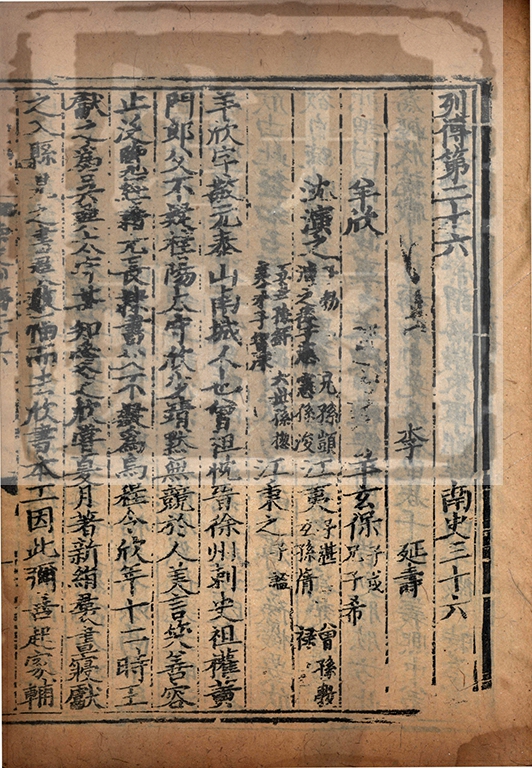 列傳第二十六 南史三十六
李 延壽
羊欣 羊玄保 子戎 兄子希
沈演之 子勃 兄孫顗 演之從子 憲 憲孫浚 江夷 子湛 曾孫斆 玄孫蒨 祿
五世孫 六世孫 江秉之 子
羊欣字敬元泰山南城人也曾祖忱晉徐州刺史祖權黃
門郎父不疑桂陽太守欣少靖默無競於人美言笑善容
止泛覽經籍尤長隸書父不疑為烏程令欣年十二時王
獻之為吳興太守甚知愛之欣嘗夏月著新絹裙晝寢獻
之入縣見之書裙數幅而去欣書本工因此彌善起家輔